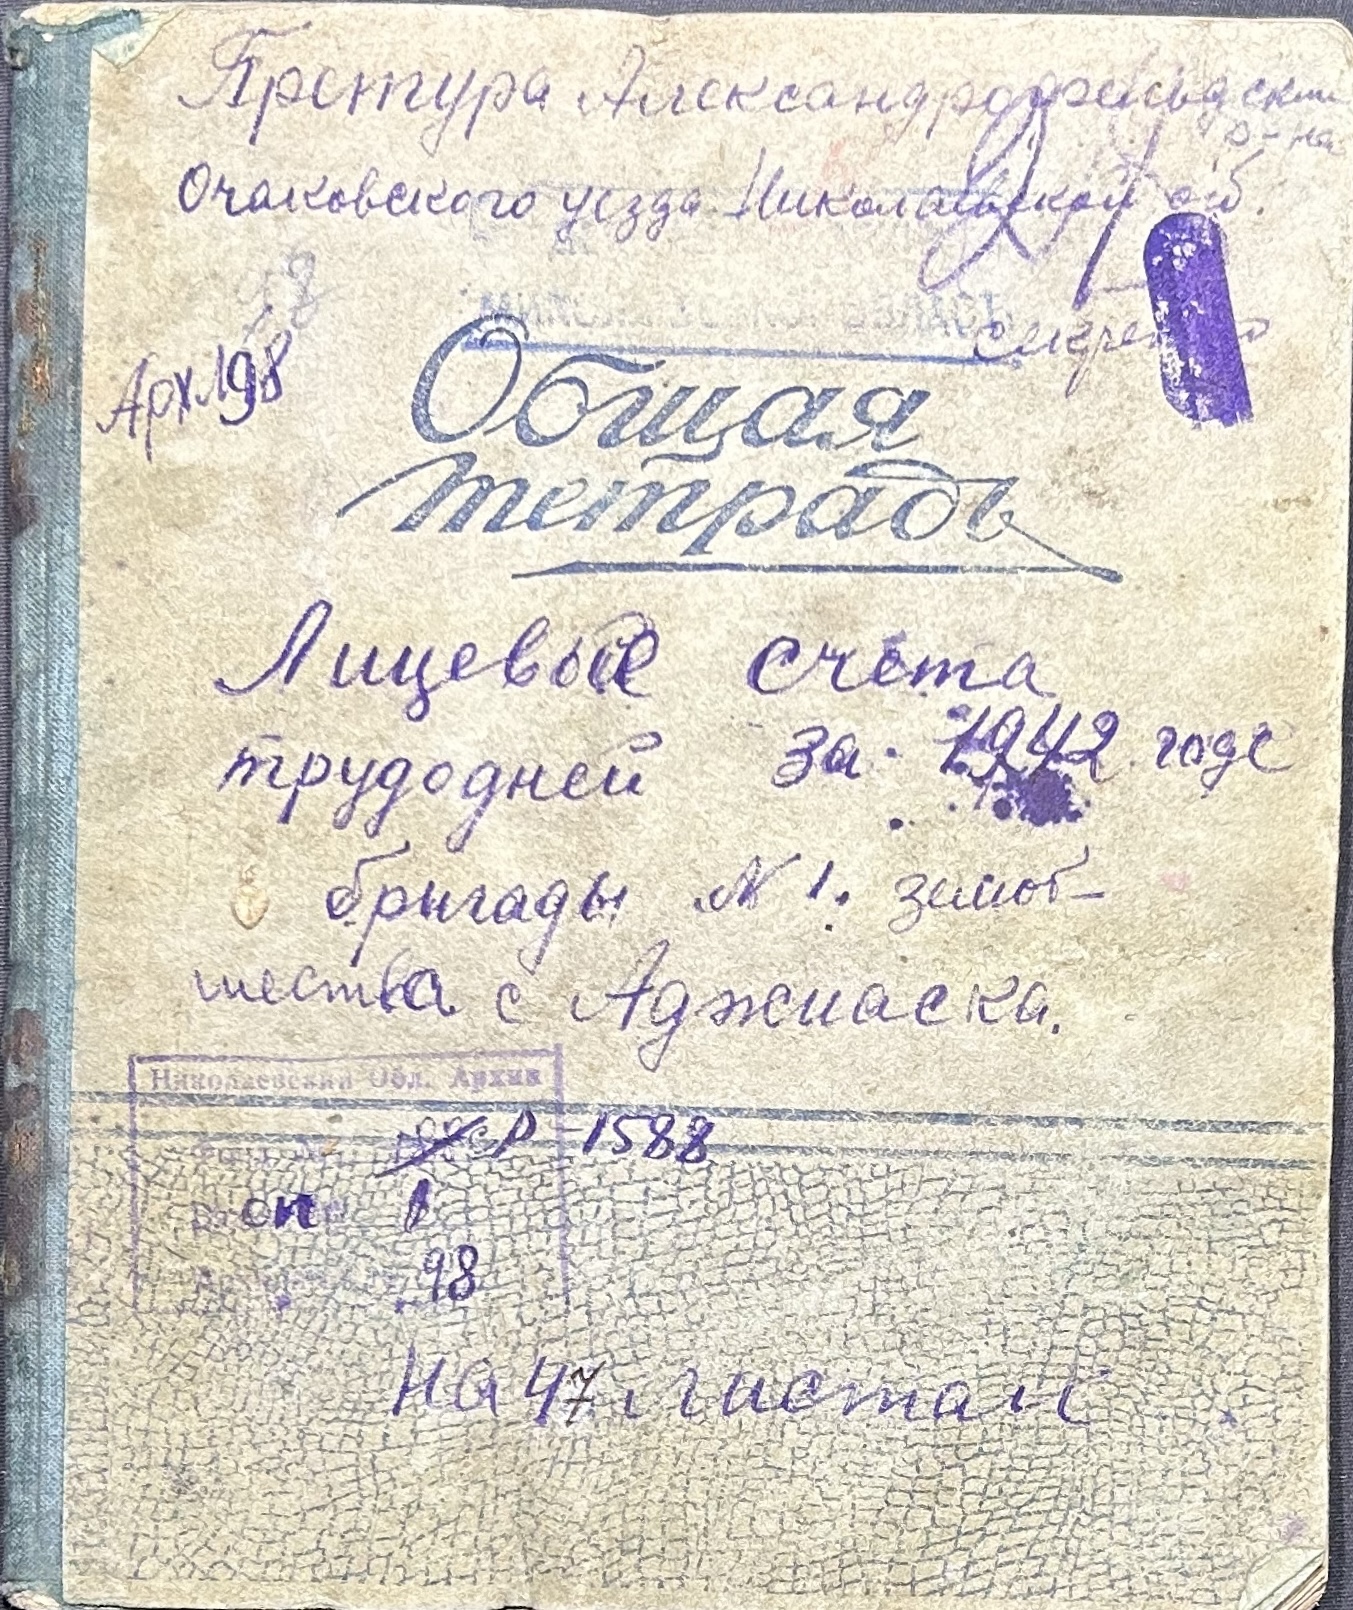 Претура Александрофельдским
р-на
Очаковского уезда Николаевской об.
Арх № 98
секретно
Общая
тетрадь
Лицевые счета
трудодней за 1942 годе
бригады № 1. землоб-
шества с Аджиаска.
Николаевский Обл. Архив
Р-1588
оп 1
98
На 47 листах